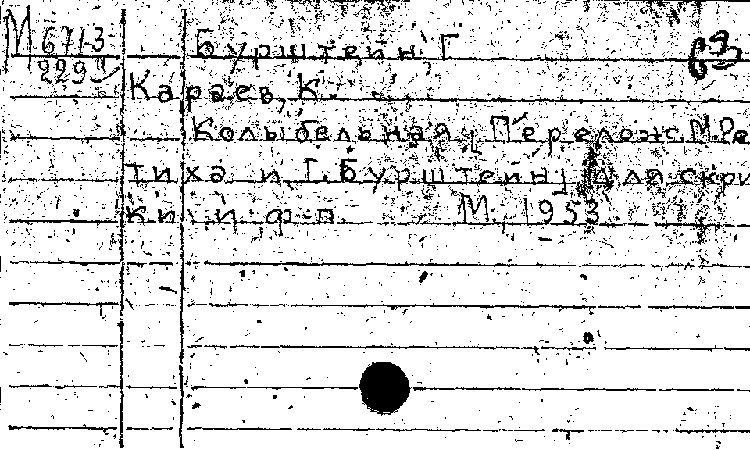 М 6713 Бурштейн, Г
2299
Караев, К.
Колыбельная [Перелож. М. Ре
тиха и Г. Бурштейн] для скри
ки и ф-п. М., 1953.